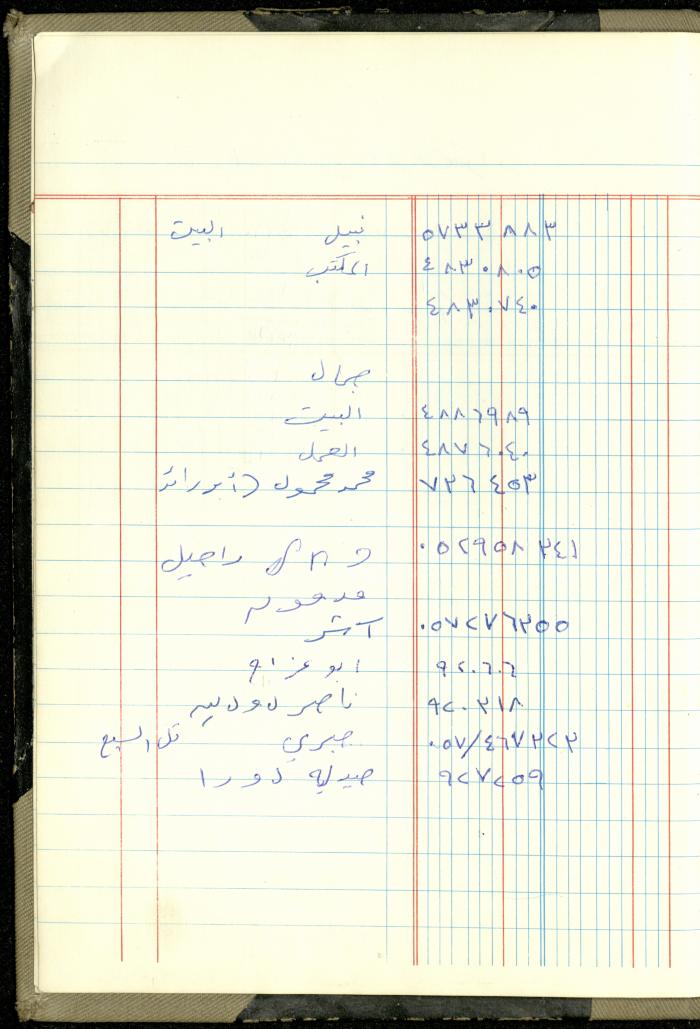 نبيل البيت ٥٧٣٣٨٨٣
المكتب ٤٨٣٠٨٠٥
٤٨٣٠٧٤٠
جمال
البيت ٤٨٨٦٩٨٩
العمل ٤٨٧٦٠٤٠
محمد محمود (أبو رائد ٧٢٦٤٥٣
راحيل ٠٥٢٩٥٨٢٤١
آشر ٠٥٧٢٧٦٢٥٥
ابو غزاله ٩٢٠٦٠٦
ناصر دودين ٩٢٠٢١٨
صبري تل السبع ٠٥٧/٤٦٧٢٢٢
صيدلية دورا ٩٢٧٢٥٩